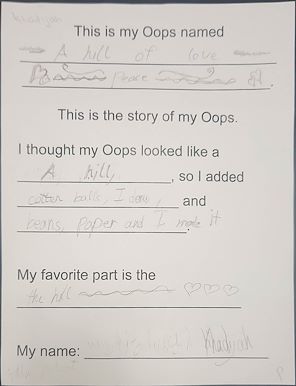 Khadijah
This is my Oops named
A hill of love
Peace
This is the story of my Oops.
I thought my Oops looked like a
A hill, so I added
cotten balls, I draw, and
beans, paper and I made it
My favorite part is the
the hill
My name: Khadijah